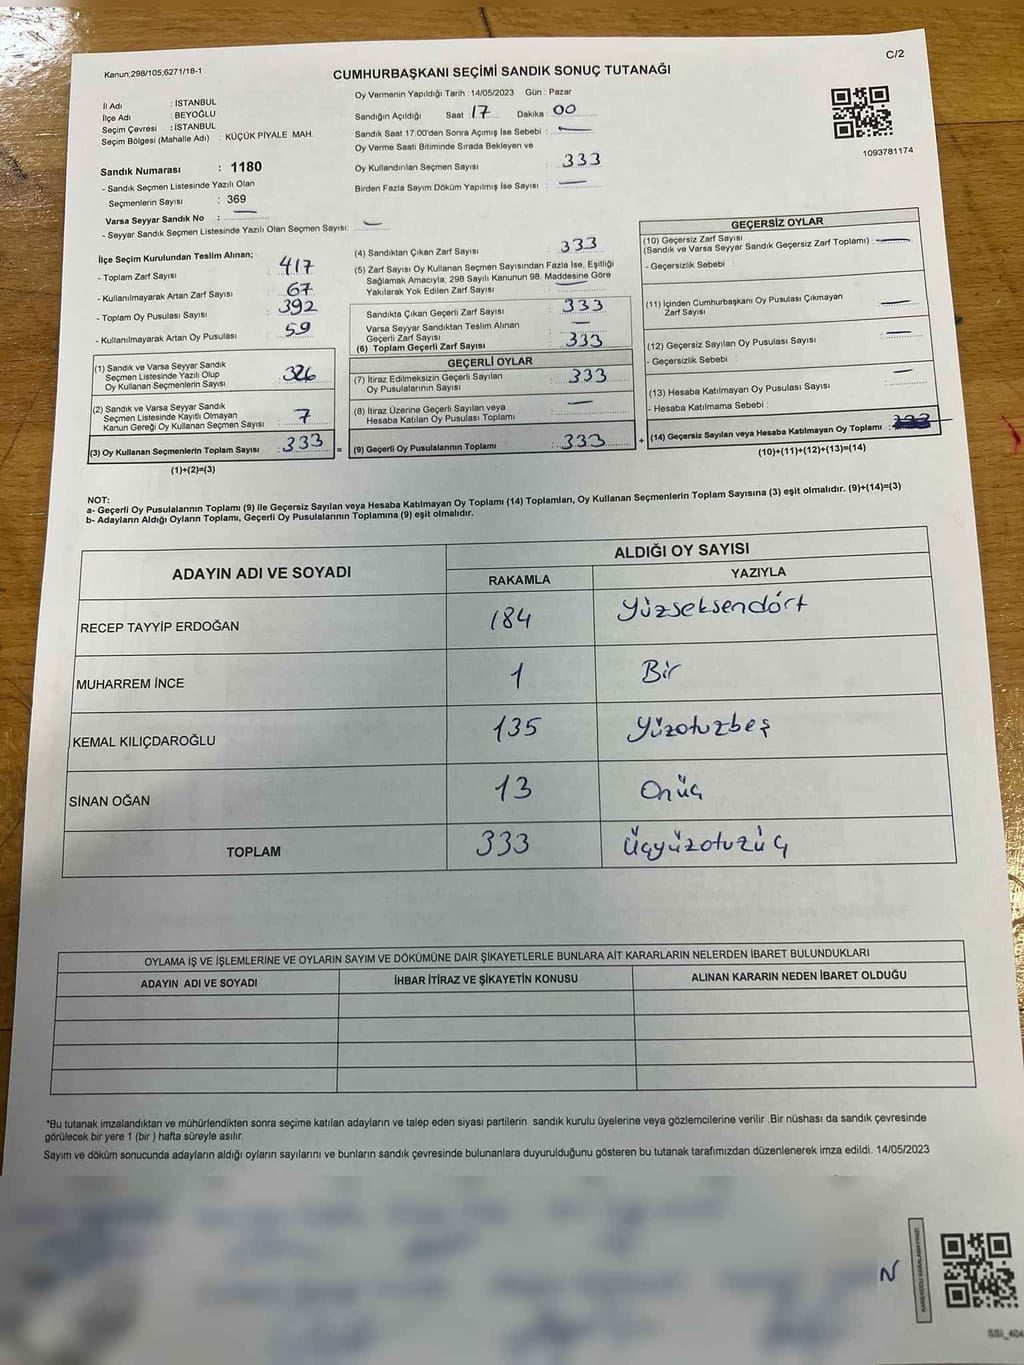 C/2
Kanun;298/105;6271/18-1
CUMHURBAŞKANI SEÇİMİ SANDIK SONUÇ TUTANAĞI
İl Adı : İSTANBUL
İlçe Adı : BEYOĞLU
Seçim Çevresi : İSTANBUL
Seçim Bölgesi (Mahalle Adı) : KÜÇÜK PİYALE MAH.
Sandık Numarası : 1180
- Sandık Seçmen Listesinde Yazılı Olan
Seçmenlerin Sayısı : 369
Varsa Seyyar Sandık No : —
- Seyyar Sandık Seçmen Listesinde Yazılı Olan Seçmen Sayısı: —
Oy Vermenin Yapıldığı Tarih :14/05/2023 Gün : Pazar
Sandığın Açıldığı Saat 17 Dakika : 00
Sandık Saat 17:00'den Sonra Açımış İse Sebebi : —
Oy Verme Saati Bitiminde Sırada Bekleyen ve
Oy Kullandırılan Seçmen Sayısı : 333
Birden Fazla Sayım Döküm Yapılmış İse Sayısı : —
1093781174
İlçe Seçim Kurulundan Teslim Alınan;
- Toplam Zarf Sayısı : 417
- Kullanılmayarak Artan Zarf Sayısı : 67
- Toplam Oy Pusulası Sayısı : 392
- Kullanılmayarak Artan Oy Pusulası : 59
(1) Sandık ve Varsa Seyyar Sandık
Seçmen Listesinde Yazılı Olup
Oy Kullanan Seçmenlerin Sayısı : 326
(2) Sandık ve Varsa Seyyar Sandık
Seçmen Listesinde Kayıtlı Olmayan
Kanun Gereği Oy Kullanan Seçmen Sayısı : 7
(3) Oy Kullanan Seçmenlerin Toplam Sayısı : 333 =
(1)+(2)=(3)
(4) Sandıktan Çıkan Zarf Sayısı : 333
(5) Zarf Sayısı Oy Kullanan Seçmen Sayısından Fazla İse, Eşitliği
Sağlamak Amacıyla; 298 Sayılı Kanunun 98. Maddesine Göre
Yakılarak Yok Edilen Zarf Sayısı : —
Sandıkta Çıkan Geçerli Zarf Sayısı : 333
Varsa Seyyar Sandıktan Teslim Alınan
Geçerli Zarf Sayısı : —
(6) Toplam Geçerli Zarf Sayısı : 333
GEÇERLİ OYLAR
(7) İtiraz Edilmeksizin Geçerli Sayılan
Oy Pusulalarının Sayısı : 333
(8) İtiraz Üzerine Geçerli Sayılan veya
Hesaba Katılan Oy Pusulası Toplamı : —
(9) Geçerli Oy Pusulalarının Toplamı : 333 +
GEÇERSİZ OYLAR
(10) Geçersiz Zarf Sayısı
(Sandık ve Varsa Seyyar Sandık Geçersiz Zarf Toplamı) : —
- Geçersizlik Sebebi :
(11) İçinden Cumhurbaşkanı Oy Pusulası Çıkmayan
Zarf Sayısı : —
(12) Geçersiz Sayılan Oy Pusulası Sayısı : —
- Geçersizlik Sebebi :
(13) Hesaba Katılmayan Oy Pusulası Sayısı : —
- Hesaba Katılmama Sebebi :
(14) Geçersiz Sayılan veya Hesaba Katılmayan Oy Toplamı :
(10)+(11)+(12)+(13)=(14)
NOT:
a- Geçerli Oy Pusulalarının Toplamı (9) ile Geçersiz Sayılan veya Hesaba Katılmayan Oy Toplamı (14) Toplamları, Oy Kullanan Seçmenlerin Toplam Sayısına (3) eşit olmalıdır. (9)+(14)=(3)
b- Adayların Aldığı Oyların Toplamı, Geçerli Oy Pusulalarının Toplamına (9) eşit olmalıdır.
ADAYIN ADI VE SOYADI ALDIĞI OY SAYISI
RAKAMLA YAZIYLA
RECEP TAYYİP ERDOĞAN 184 Yüzseksendört
MUHARREM İNCE 1 Bir
KEMAL KILIÇDAROĞLU 135 Yüzotuzbeş
SİNAN OĞAN 13 Onüç
TOPLAM 333 Üçyüzotuzüç
OYLAMA İŞ VE İŞLEMLERİNE VE OYLARIN SAYIM VE DÖKÜMÜNE DAİR ŞİKAYETLERLE BUNLARA AİT KARARLARIN NELERDEN İBARET BULUNDUKLARI
ADAYIN ADI VE SOYADI İHBAR İTİRAZ VE ŞİKAYETİN KONUSU ALINAN KARARIN NEDEN İBARET OLDUĞU
*Bu tutanak imzalandıktan ve mühürlendikten sonra seçime katılan adayların ve talep eden siyasi partilerin sandık kurulu üyelerine veya gözlemcilerine verilir .Bir nüshası da sandık çevresinde
görülecek bir yere 1 (bir ) hafta süreyle asılır.
Sayım ve döküm sonucunda adayların aldığı oyların sayılarını ve bunların sandık çevresinde bulunanlara duyurulduğunu gösteren bu tutanak tarafımızdan düzenlenerek imza edildi. 14/05/2023
N
KAREKODU KARALAMAYINIZ!